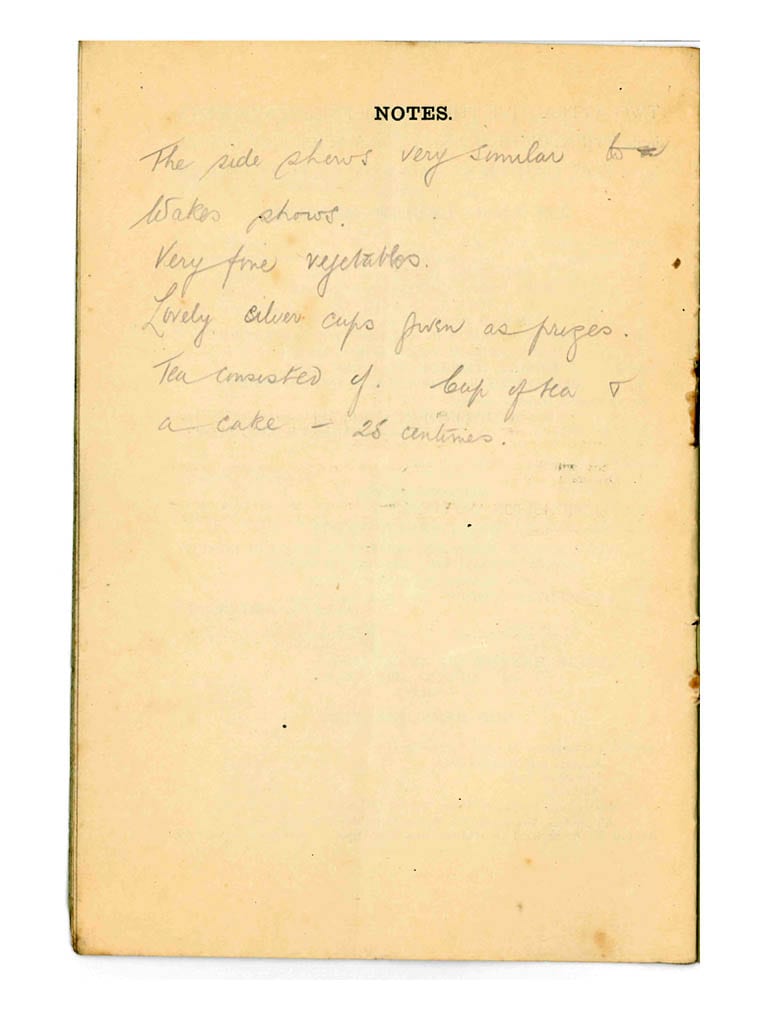 NOTES.
The side shows very similar to a
Wakes shows.
Very fine vegetables.
Lovely silver cups given as prizes.
Tea consisted of. Cup of tea &
a cake – 25 centimes.